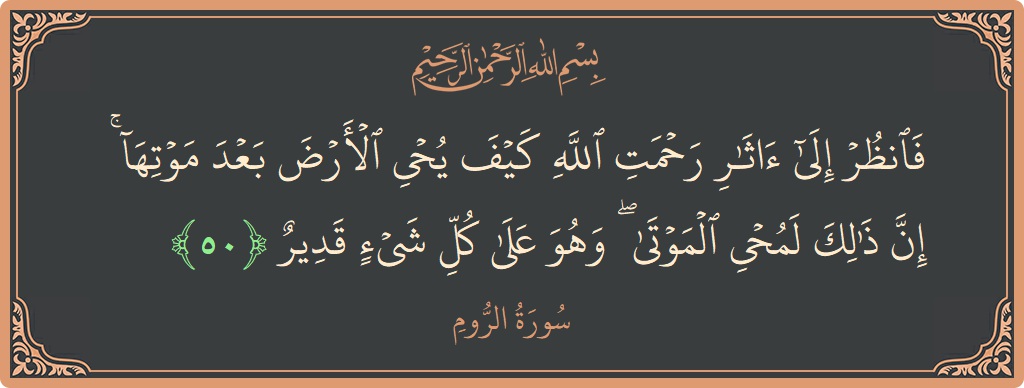 بِسْمِ اللَّهِ الرَّحْمَٰنِ الرَّحِيمِ
فَٱنظُرْ إِلَىٰٓ ءَاثَـٰرِ رَحْمَتِ ٱللَّهِ كَيْفَ يُحْىِ ٱلْأَرْضَ بَعْدَ مَوْتِهَآ ۚ
إِنَّ ذَٰلِكَ لَمُحْىِ ٱلْمَوْتَىٰ ۖ وَهُوَ عَلَىٰ كُلِّ شَىْءٍ قَدِيرٌ ﴿٥٠﴾
سُورَةُ الرُّومِ